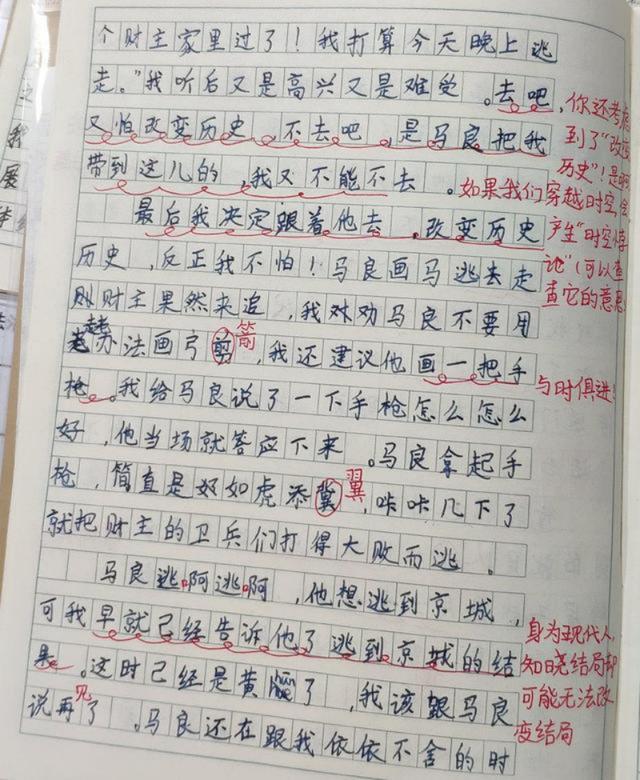 个财主家里过了！我打算今天晚上逃
走。"我听后又是高兴又是难受。去吧，
又怕改变历史，不去吧，是马良把我
带到这儿的，我又不能不去。
你还考虑
到了"改变
历史"！是啊
如果我们穿越时空，会
产生"时空悖
论"（可以查
查它的意思
最后我决定跟着他去。改变历史
历史，反正我不怕！马良画马逃去走
则财主果然来追，我对劝马良不要用
老办法画弓剪，我还建议他画一把手
箭
与时俱进！
枪。我给马良说了一下手枪怎么怎么
好，他当场就答应下来。马良拿起手
枪，简直是好如虎添冀，咔咔几下了
翼
就把财主的卫兵们打得大败而逃。
马良逃啊逃啊，他想逃到京城，
可我早就已经告诉他了逃到京城的结
果。这时已经是黄了，我该跟马良
见
说再了。马良还在跟我依依不舍的时
身为现代人，
知晓结局却
可能无法改
变结局